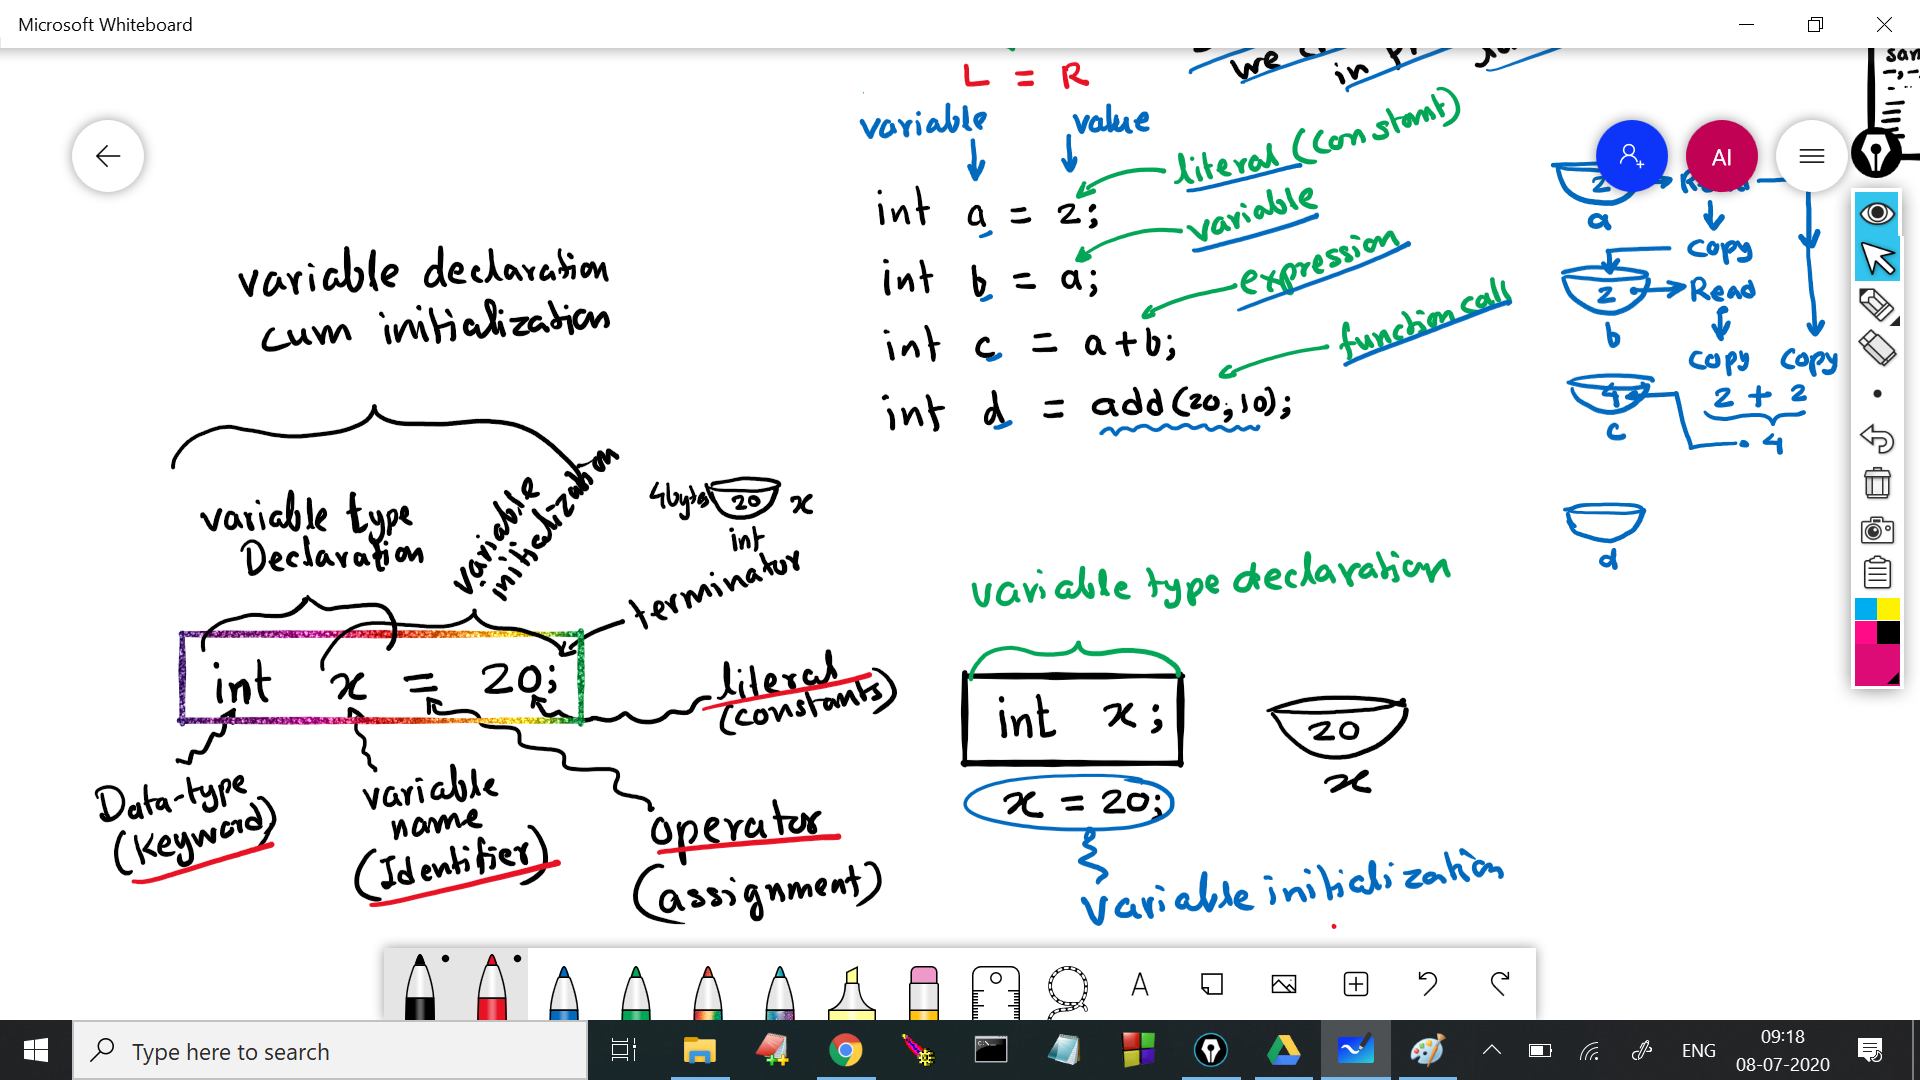 Microsoft Whiteboard
we
in
L = R
variable
value
literal (constant)
int a = 2;
variable
int b = a;
expression
int c = a+b;
function call
int d = add(20,10);
AI
2
a
copy
2
Read
b
copy copy
4
2 + 2
c
4
d
variable declaration
cum initialization
variable type
Declaration
variable
initialization
4bytes 20 x
int
terminator
int x = 20;
literal
(constants)
Data-type
(Keyword)
variable
name
(Identifier)
operator
(assignment)
variable type declaration
int x;
20
x
x = 20;
variable initialization
A
Type here to search
ENG
09:18
08-07-2020